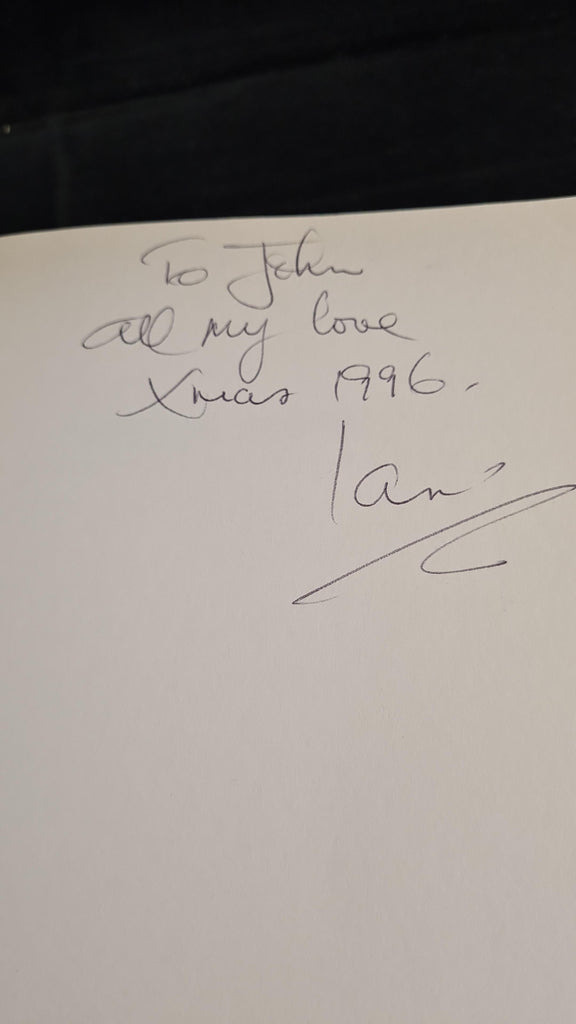 To John
all my love
Xmas 1996.
Ian